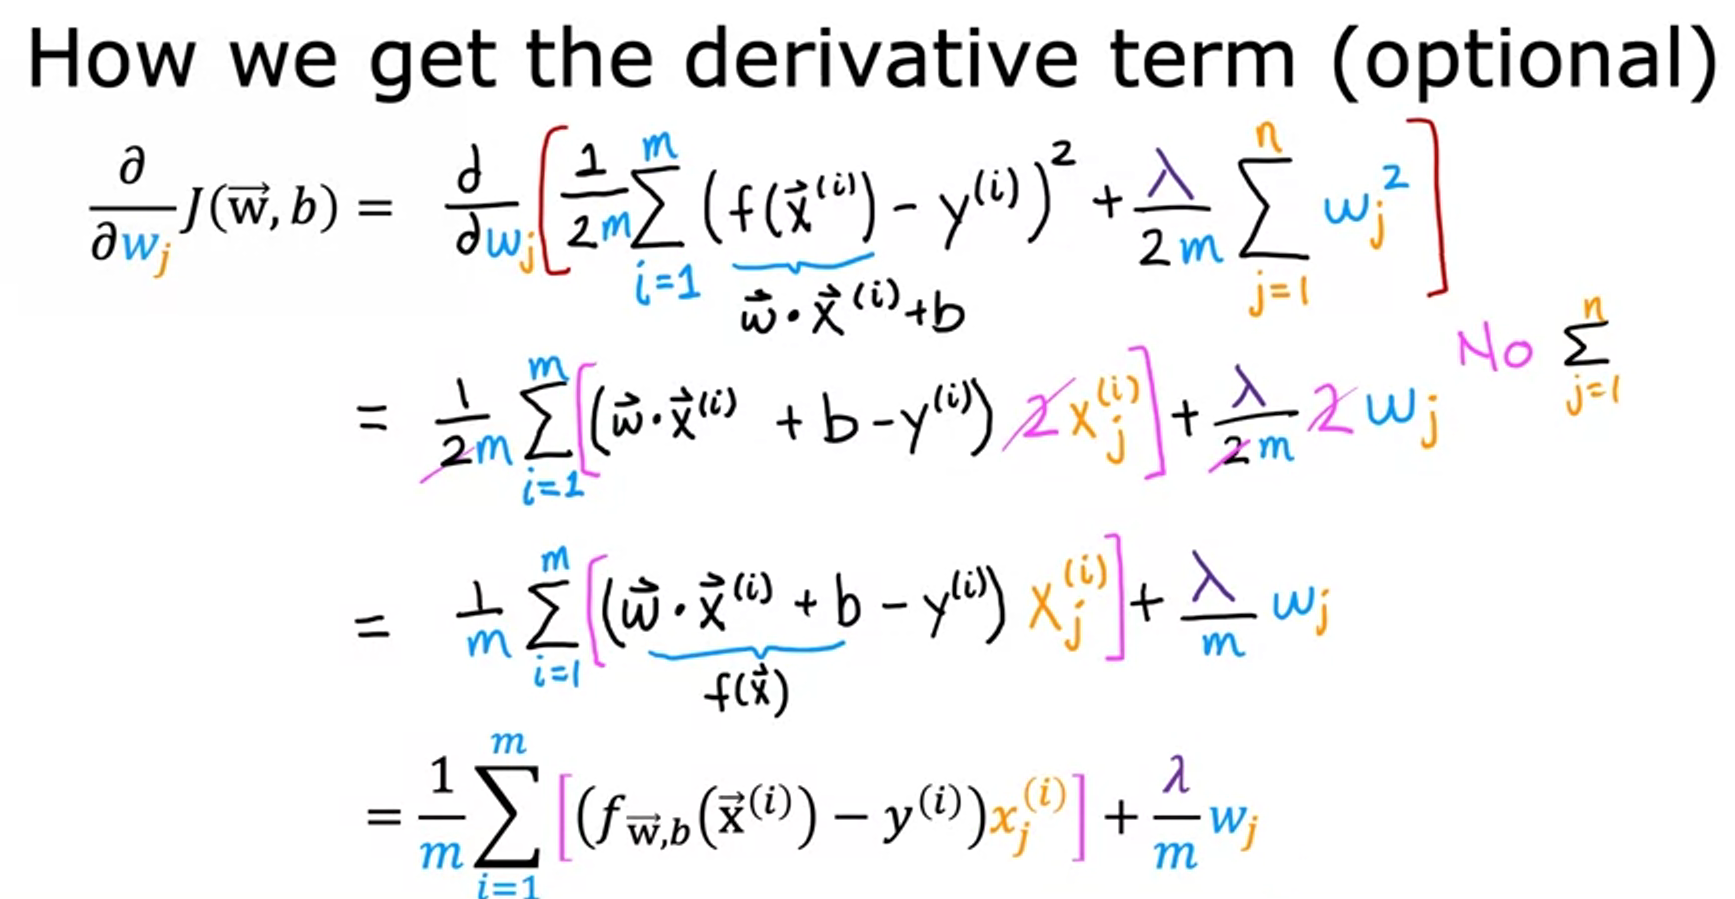 How we get the derivative term (optional)
∂/∂w_j J(w⃗,b) = d/dw_j [ 1/2m ∑_{i=1}^{m} (f(x⃗^(i)) - y^(i))^2 + λ/2m ∑_{j=1}^{n} w_j^2 ]
w⃗·x⃗^(i)+b
No ∑_{j=1}^{n}
= 1/2m ∑_{i=1}^{m} [(w⃗·x⃗^(i) + b - y^(i)) 2 x_j^(i)] + λ/2m 2 w_j
= 1/m ∑_{i=1}^{m} [(w⃗·x⃗^(i) + b - y^(i)) x_j^(i)] + λ/m w_j
f(x⃗)
= 1/m ∑_{i=1}^{m} [(f_{w⃗,b}(x⃗^(i)) − y^(i)) x_j^(i)] + λ/m w_j